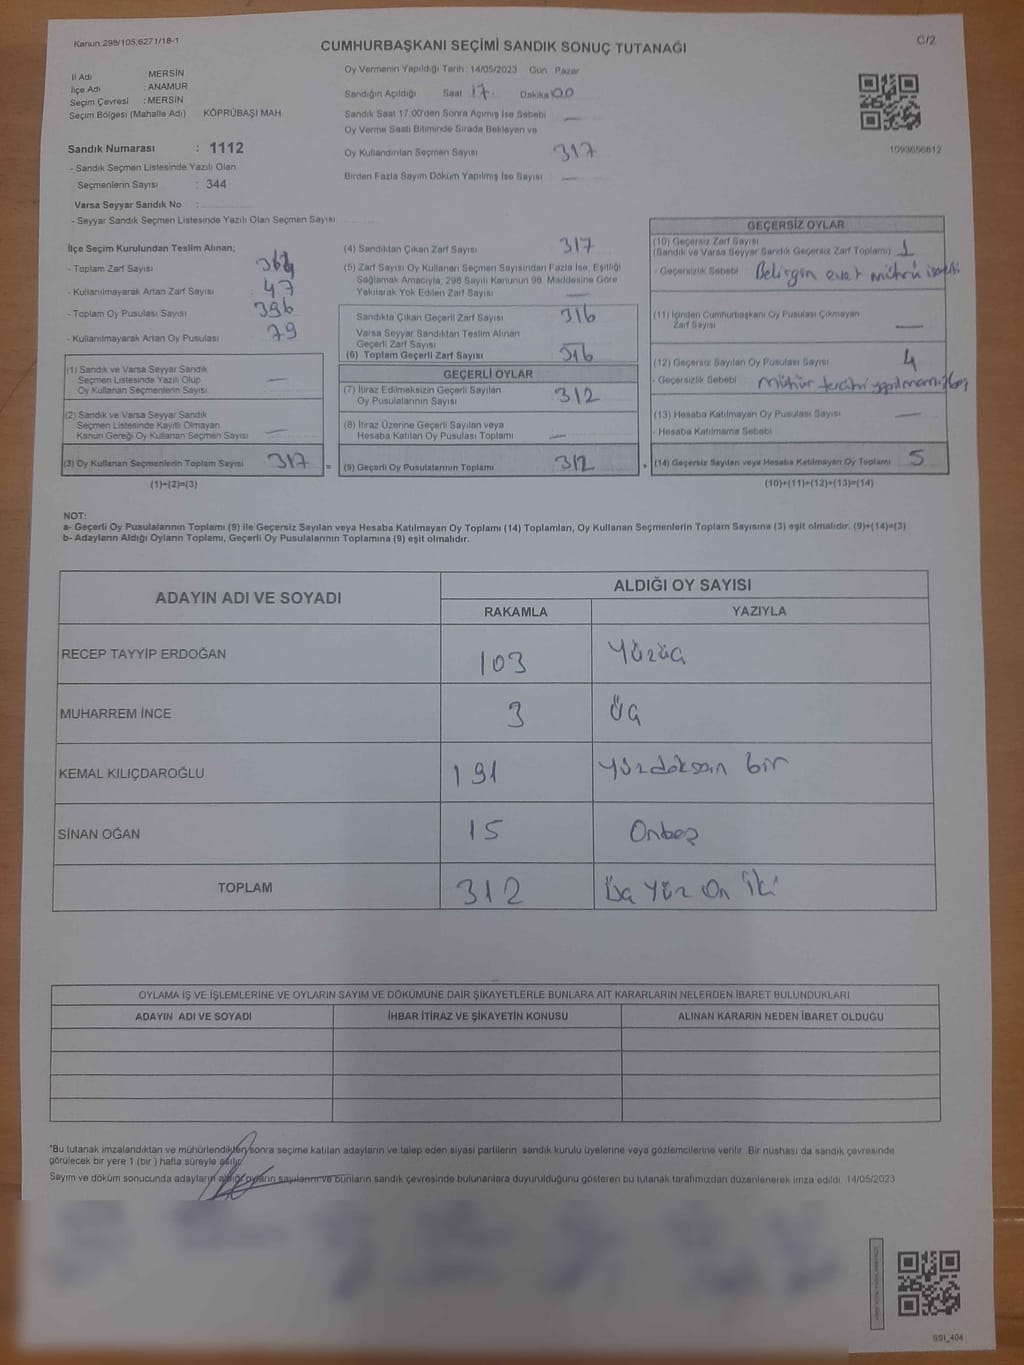 Kanun:298/105,6271/18-1
C/2
CUMHURBAŞKANI SEÇİMİ SANDIK SONUÇ TUTANAĞI
İl Adı : MERSİN
İlçe Adı : ANAMUR
Seçim Çevresi : MERSİN
Seçim Bölgesi (Mahalle Adı) KÖPRÜBAŞI MAH
Sandık Numarası : 1112
- Sandık Seçmen Listesinde Yazılı Olan
Seçmenlerin Sayısı : 344
Varsa Seyyar Sandık No :
- Seyyar Sandık Seçmen Listesinde Yazılı Olan Seçmen Sayısı
Oy Vermenin Yapıldığı Tarih : 14/05/2023 Gün : Pazar
Sandığın Açıldığı Saat 17 Dakika 00
Sandık Saat 17.00'den Sonra Açılmış İse Sebebi —
Oy Verme Saati Bitiminde Sırada Bekleyen ve
Oy Kullandırılan Seçmen Sayısı 317
Birden Fazla Sayım Döküm Yapılmış İse Sayısı —
1093656612
İlçe Seçim Kurulundan Teslim Alınan;
- Toplam Zarf Sayısı
- Kullanılmayarak Artan Zarf Sayısı 47
- Toplam Oy Pusulası Sayısı 396
- Kullanılmayarak Artan Oy Pusulası 79
(1) Sandık ve Varsa Seyyar Sandık
Seçmen Listesinde Yazılı Olup
Oy Kullanan Seçmenlerin Sayısı —
(2) Sandık ve Varsa Seyyar Sandık
Seçmen Listesinde Kayıtlı Olmayan
Kanun Gereği Oy Kullanan Seçmen Sayısı —
(3) Oy Kullanan Seçmenlerin Toplam Sayısı 317
(1)+(2)=(3)
(4) Sandıktan Çıkan Zarf Sayısı 317
(5) Zarf Sayısı Oy Kullanan Seçmen Sayısından Fazla İse, Eşitliği
Sağlamak Amacıyla, 298 Sayılı Kanunun 98. Maddesine Göre
Yakılarak Yok Edilen Zarf Sayısı —
Sandıkta Çıkan Geçerli Zarf Sayısı 316
Varsa Seyyar Sandıktan Teslim Alınan
Geçerli Zarf Sayısı —
(6) Toplam Geçerli Zarf Sayısı 316
GEÇERLİ OYLAR
(7) İtiraz Edilmeksizin Geçerli Sayılan
Oy Pusulalarının Sayısı 312
(8) İtiraz Üzerine Geçerli Sayılan veya
Hesaba Katılan Oy Pusulası Toplamı —
= (9) Geçerli Oy Pusulalarının Toplamı 312
GEÇERSİZ OYLAR
(10) Geçersiz Zarf Sayısı
(Sandık ve Varsa Seyyar Sandık Geçersiz Zarf Toplamı) 1
- Geçersizlik Sebebi : Belirgin evet mührü
(11) İçinden Cumhurbaşkanı Oy Pusulası Çıkmayan
Zarf Sayısı —
(12) Geçersiz Sayılan Oy Pusulası Sayısı 4
- Geçersizlik Sebebi : mühür tercihi
(13) Hesaba Katılmayan Oy Pusulası Sayısı —
- Hesaba Katılmama Sebebi
+ (14) Geçersiz Sayılan veya Hesaba Katılmayan Oy Toplamı 5
(10)+(11)+(12)+(13)=(14)
NOT:
a- Geçerli Oy Pusulalarının Toplamı (9) ile Geçersiz Sayılan veya Hesaba Katılmayan Oy Toplamı (14) Toplamları, Oy Kullanan Seçmenlerin Toplam Sayısına (3) eşit olmalıdır. (9)+(14)=(3)
b- Adayların Aldığı Oyların Toplamı, Geçerli Oy Pusulalarının Toplamına (9) eşit olmalıdır.
ADAYIN ADI VE SOYADI
ALDIĞI OY SAYISI
RAKAMLA YAZIYLA
RECEP TAYYİP ERDOĞAN 103 Yüzüç
MUHARREM İNCE 3 Üç
KEMAL KILIÇDAROĞLU 191 Yüzdoksan bir
SİNAN OĞAN 15 Onbeş
TOPLAM 312 Üç Yüz On İki
OYLAMA İŞ VE İŞLEMLERİNE VE OYLARIN SAYIM VE DÖKÜMÜNE DAİR ŞİKAYETLERLE BUNLARA AİT KARARLARIN NELERDEN İBARET BULUNDUKLARI
ADAYIN ADI VE SOYADI İHBAR İTİRAZ VE ŞİKAYETİN KONUSU ALINAN KARARIN NEDEN İBARET OLDUĞU
*Bu tutanak imzalandıktan ve mühürlendikten sonra seçime katılan adayların ve talep eden siyasi partilerin sandık kurulu üyelerine veya gözlemcilerine verilir .Bir nüshası da sandık çevresinde
görülecek bir yere 1 (bir ) hafta süreyle asılır.
Sayım ve döküm sonucunda adayların aldığı oyların sayılarını ve bunların sandık çevresinde bulunanlara duyurulduğunu gösteren bu tutanak tarafımızdan düzenlenerek imza edildi. 14/05/2023
SSI_404